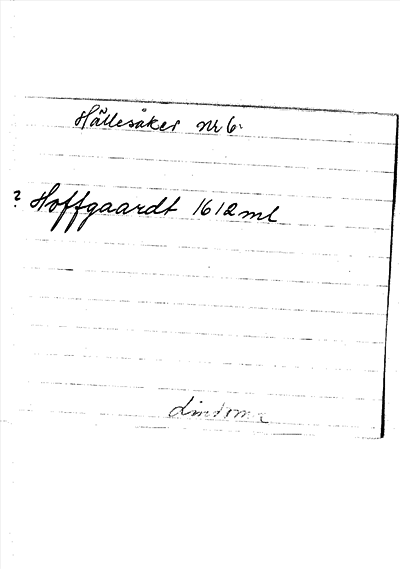 Hällesåker nr 6.
? Hoffgaardt 1612 ml
Lindome